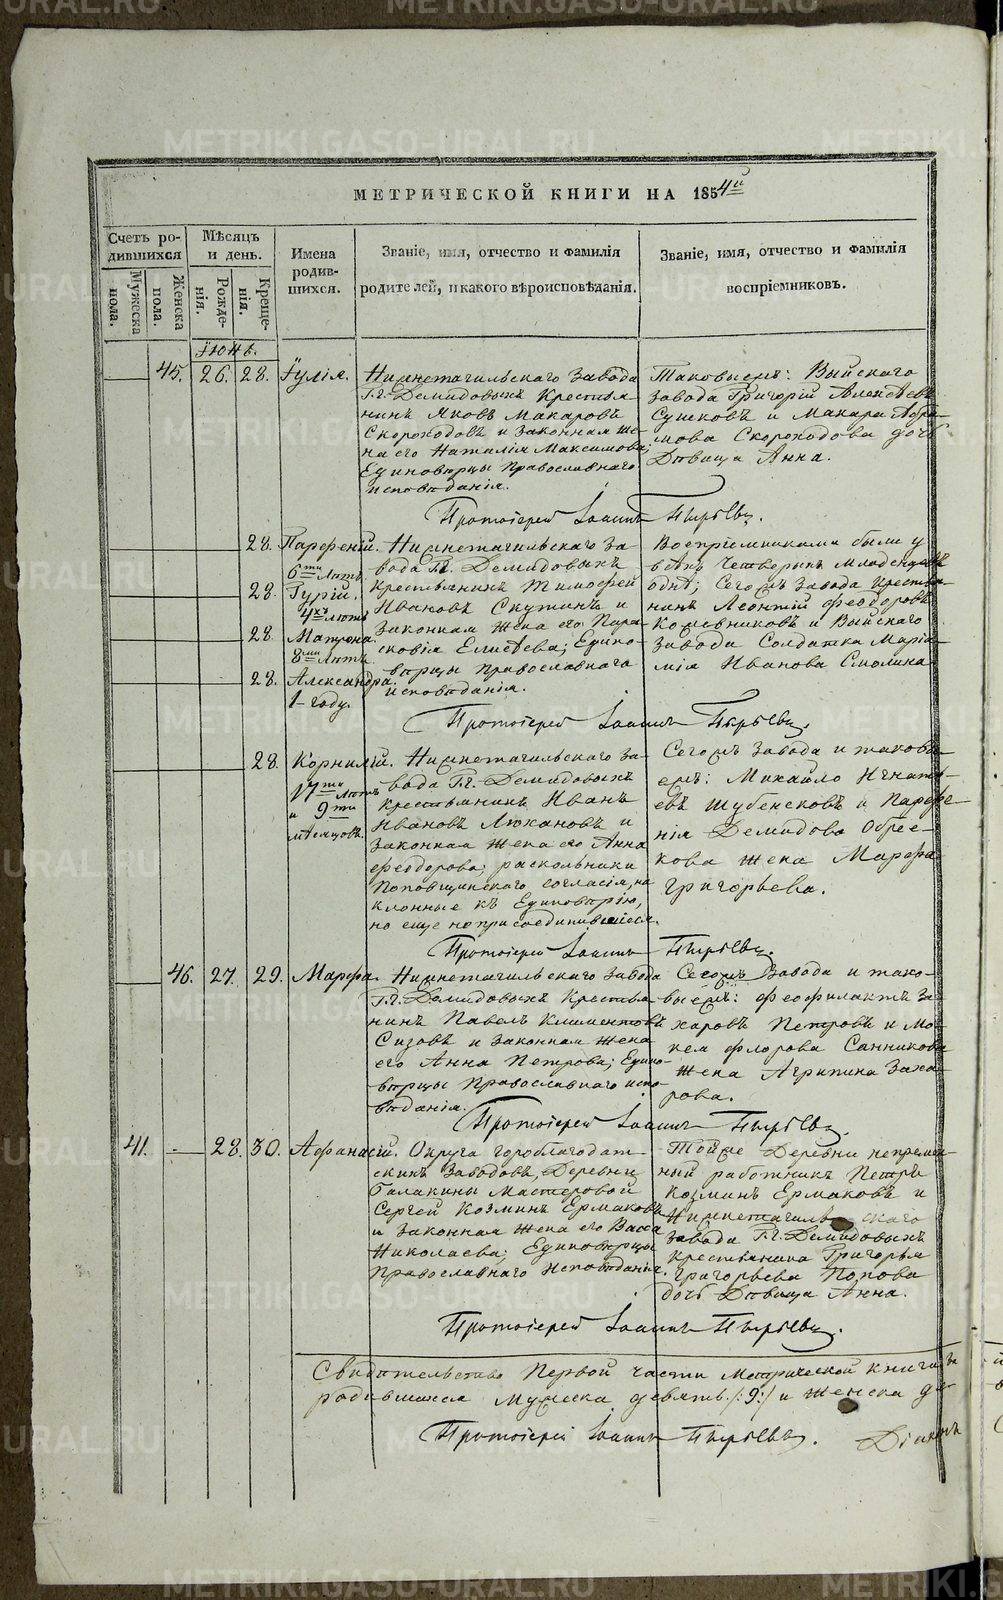 METRIKI.GASO-URAL.RU
МЕТРИЧЕСКОЙ КНИГИ НА 1854й
Счетъ ро-
дившихся
Мѣсяцъ
и день.
Имена
родив-
шихся.
Званіе, имя, отчество и фамилія
родителей, и какого вѣроисповѣданія.
Званіе, имя, отчество и фамилія
воспріемниковъ.
Мужеска
пола.
Женска
пола.
Рожде-
нія.
Креще-
нія.
Іюнь.
45. 26. 28. Іулія.
Нижнетагильскаго Завода
Г.г. Демидовыхъ Крестья-
нинъ Яковъ Макаровъ
Скороходовъ и Законная же-
на его Наталія Максимова;
Единовѣрцы Православнаго
исповѣданія.
Таковыемъ: Выйскаго
завода Григорій Алексѣевъ
Сушковъ и Макара Абра-
мова Скороходова дочь
Дѣвица Анна.
Протоіерей Іоаннъ Пырьевъ.
28. Парфеній.
6ти Лѣтъ.
28. Гурій.
4хъ Лѣтъ
28. Матрона.
8ми Лѣтъ.
28. Александра.
1 году.
Нижнетагильскаго За-
вода Г.г. Демидовыхъ
крестьянинъ Тимофей
Ивановъ и
Законная жена его Пара-
сковія Елисѣева; Едино-
вѣрцы Православнаго
исповѣданія.
Воспріемниками были у
всѣхъ четверыхъ младенцевъ
одни; Сегожъ Завода крестья-
нинъ Леонтій Феодоровъ
Кожевниковъ и Выйскаго
завода Солдатка Марія-
мія Иванова Смолина
Протоіерей Іоаннъ Пырьевъ.
28. Корнилій.
17ти Лѣтъ
и 9ти
мѣсяцовъ.
Нижнетагильскаго За-
вода Г.г. Демидовыхъ
крестьянинъ Иванъ
Ивановъ и
Законная жена его Анна
Феодорова; раскольники
Поповщинскаго согласія, на
клонные къ Единовѣрію,
но еще неприсоединившіеся.
Сегожъ Завода и таковы-
емъ: Михайло Игнать-
евъ Шубенсковъ и Парфе-
нія Демидова
жена Марфа
Григорьева.
Протоіерей Іоаннъ Пырьевъ.
46. 27. 29. Марфа.
Нижнетагильскаго Завода
Г.г. Демидовыхъ Крестья-
нинъ Павелъ Климентовъ
Сизовъ и Законная жена
его Анна Петрова; Едино-
вѣрцы Православнаго испо-
вѣданія.
Сегожъ Завода и тако-
выемъ: Феофилактъ За-
харовъ Петровъ и Мо-
кея Флорова Санникова
жена Агрипина Заха-
рова.
Протоіерей Іоаннъ Пырьевъ.
41. 28. 30. Афанасій.
Округа гороблагодат-
скихъ Заводовъ, Деревни
Балакины Мастеровой
Сергей Козминъ Ермаковъ
и Законная жена его Васса
Николаева; Единовѣрцы
Православнаго Исповѣданія.
Тойже Деревни непремен-
ный работникъ Петръ
Козминъ Ермаковъ и
Нижнетагильскаго
завода Г.г. Демидовыхъ
крестьянина Григорья
Григорьева Попова
дочь Дѣвица Анна.
Протоіерей Іоаннъ Пырьевъ.
Свидѣтельство Первой части Метрической книги
родившихся Мужеска девять /:9:/ и Женска
Протоіерей Іоаннъ Пырьевъ. Діаконъ